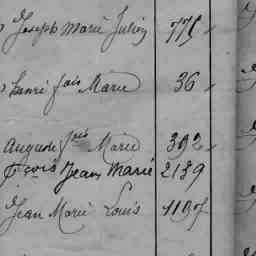 Joseph Marie Julien 775
Henri fois Marie 36
Auguste fois Marie 392
fçois Jean Marie 2139
Jean Marie Louis 1197